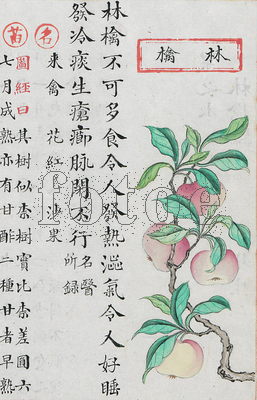 林檎
林檎不可多食令人發熱澁氣令人好睡
發冷痰生瘡癤脉閉不行 名醫
所錄
名 來禽 花紅 沙果
苗 圖經曰 其樹似柰樹實比柰差圓六
七月成熟亦有甘酢二種甘者早熟
fotoe